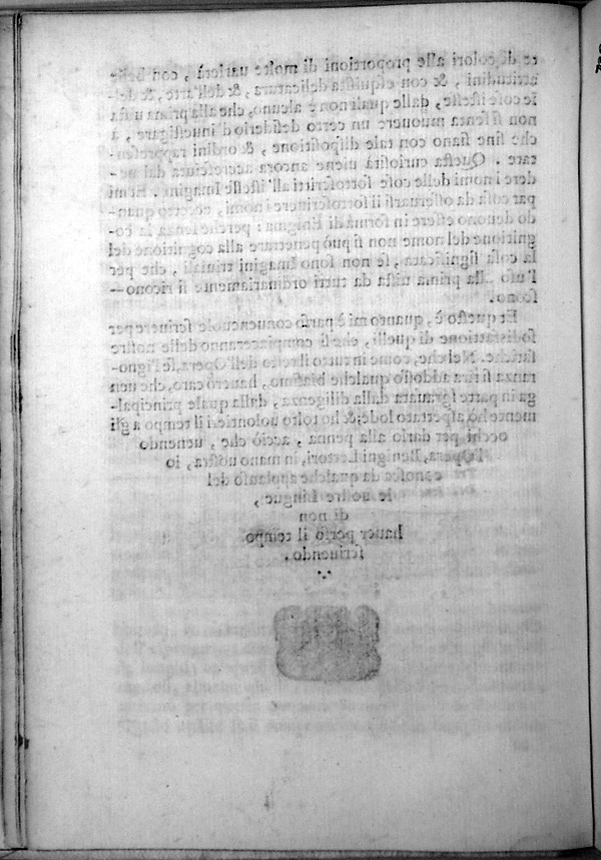 re di colori alle proportioni di molte varietà, con belle
attitudini, & con esquisita delicatura, & dell'arte, & del-
le cose istesse, dalle quali non è alcuno, che alla prima uista
non si senta muouere un certo desiderio d'inuestigare, à
che fine siano con tale dispositione, & ordini rappresen-
tate. Questa curiosità uiene ancora accresciuta dal ue-
dere i nomi delle cose sottoscritti all'istesse Imagini. Et mi
par cosa da osseruarsi il sottoscriuere i nomi, eccetto quan-
do deuono essere in forma di Enigma: perche senza la co-
gnitione del nome non si può penetrare alla cognitione del
la cosa significata, se non sono Imagini triuiali, che per
l'uso alla prima uista da tutti ordinariamente si ricono-
scono.
Et questo è, quanto mi è parso conueneuole scriuere per
sodisfattione di quelli, che si compiaceranno delle nostre
fatiche. Nelche, come in tutto il resto dell'Opera, se l'igno-
ranza si tira addosso qualche biasmo, hauerò caro, che uen
ga in parte sgrauata dalla diligenza, dalla quale principal-
mente hò aspettato lode; & ho tolto uolontieri il tempo a gli
occhi per darlo alla penna, acciò che, uenendo
l'Opera, Benigni Lettori, in mano uostra, io
conosca da qualche applauso del
le uostre Lingue,
di non
hauer perso il tempo
scriuendo.